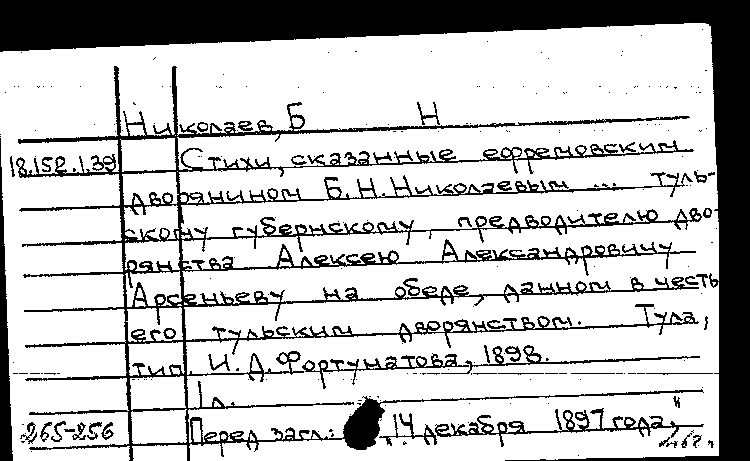 Николаев, Б Н
18.152.1.39 Стихи, сказанные ефремовским
дворянином Б.Н.Николаевым ... туль-
скому губернскому предводителю дво-
рянства Алексею Александровичу
Арсеньеву на обеде, данном в честь
его тульским дворянством. Тула,
тип. И.Д.Фортунатова, 1898.
1 л.
265-256 Перед загл.: „14 декабря 1897 года,"